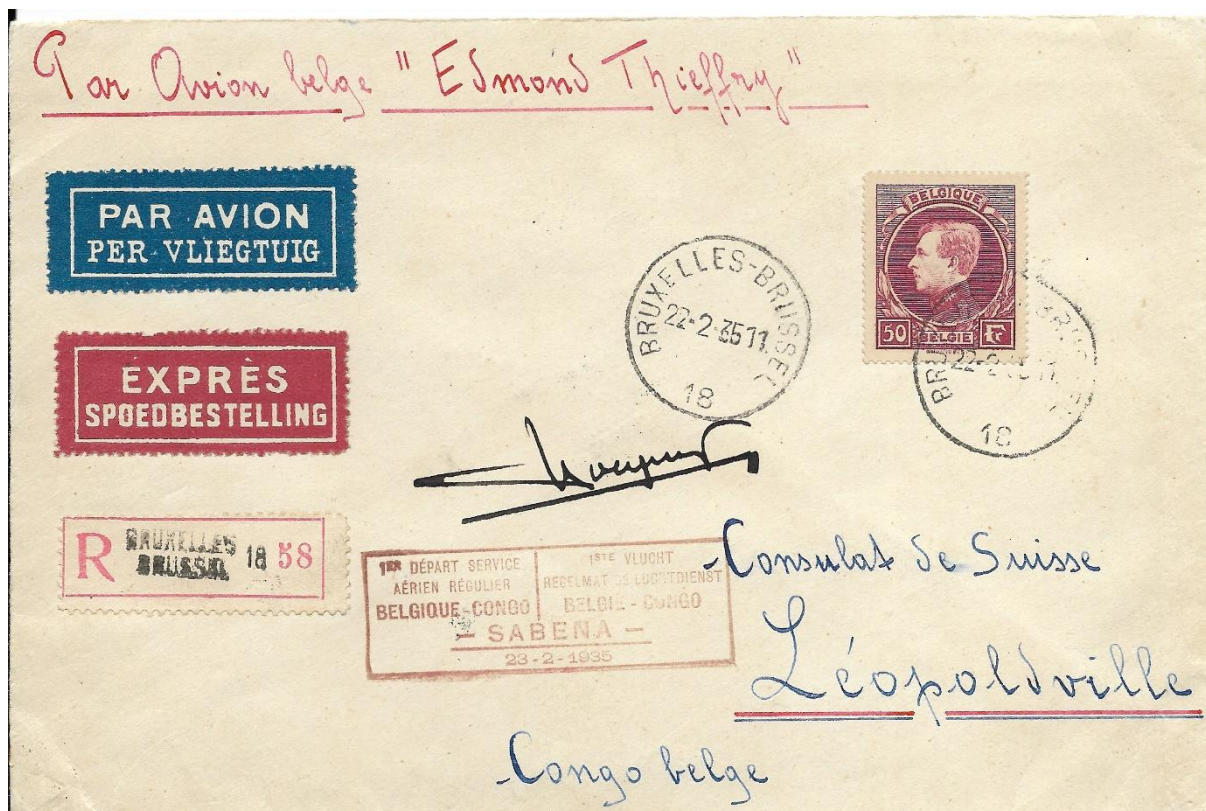 Par Avion belge "Edmond Thieffry"
PAR AVION
PER VLIEGTUIG
BELGIQUE
50 BELGIE Fr
BRUXELLES-BRUSSEL
22-2-35 11
18
EXPRÈS
SPOEDBESTELLING
R BRUXELLES
BRUSSEL
18 58
1ER DÉPART SERVICE
AÉRIEN RÉGULIER
BELGIQUE-CONGO
1STE VLUCHT
REGELMATIGE LUCHTDIENST
BELGIE - CONGO
- SABENA -
23-2-1935
Consulat de Suisse
Léopoldville
Congo belge